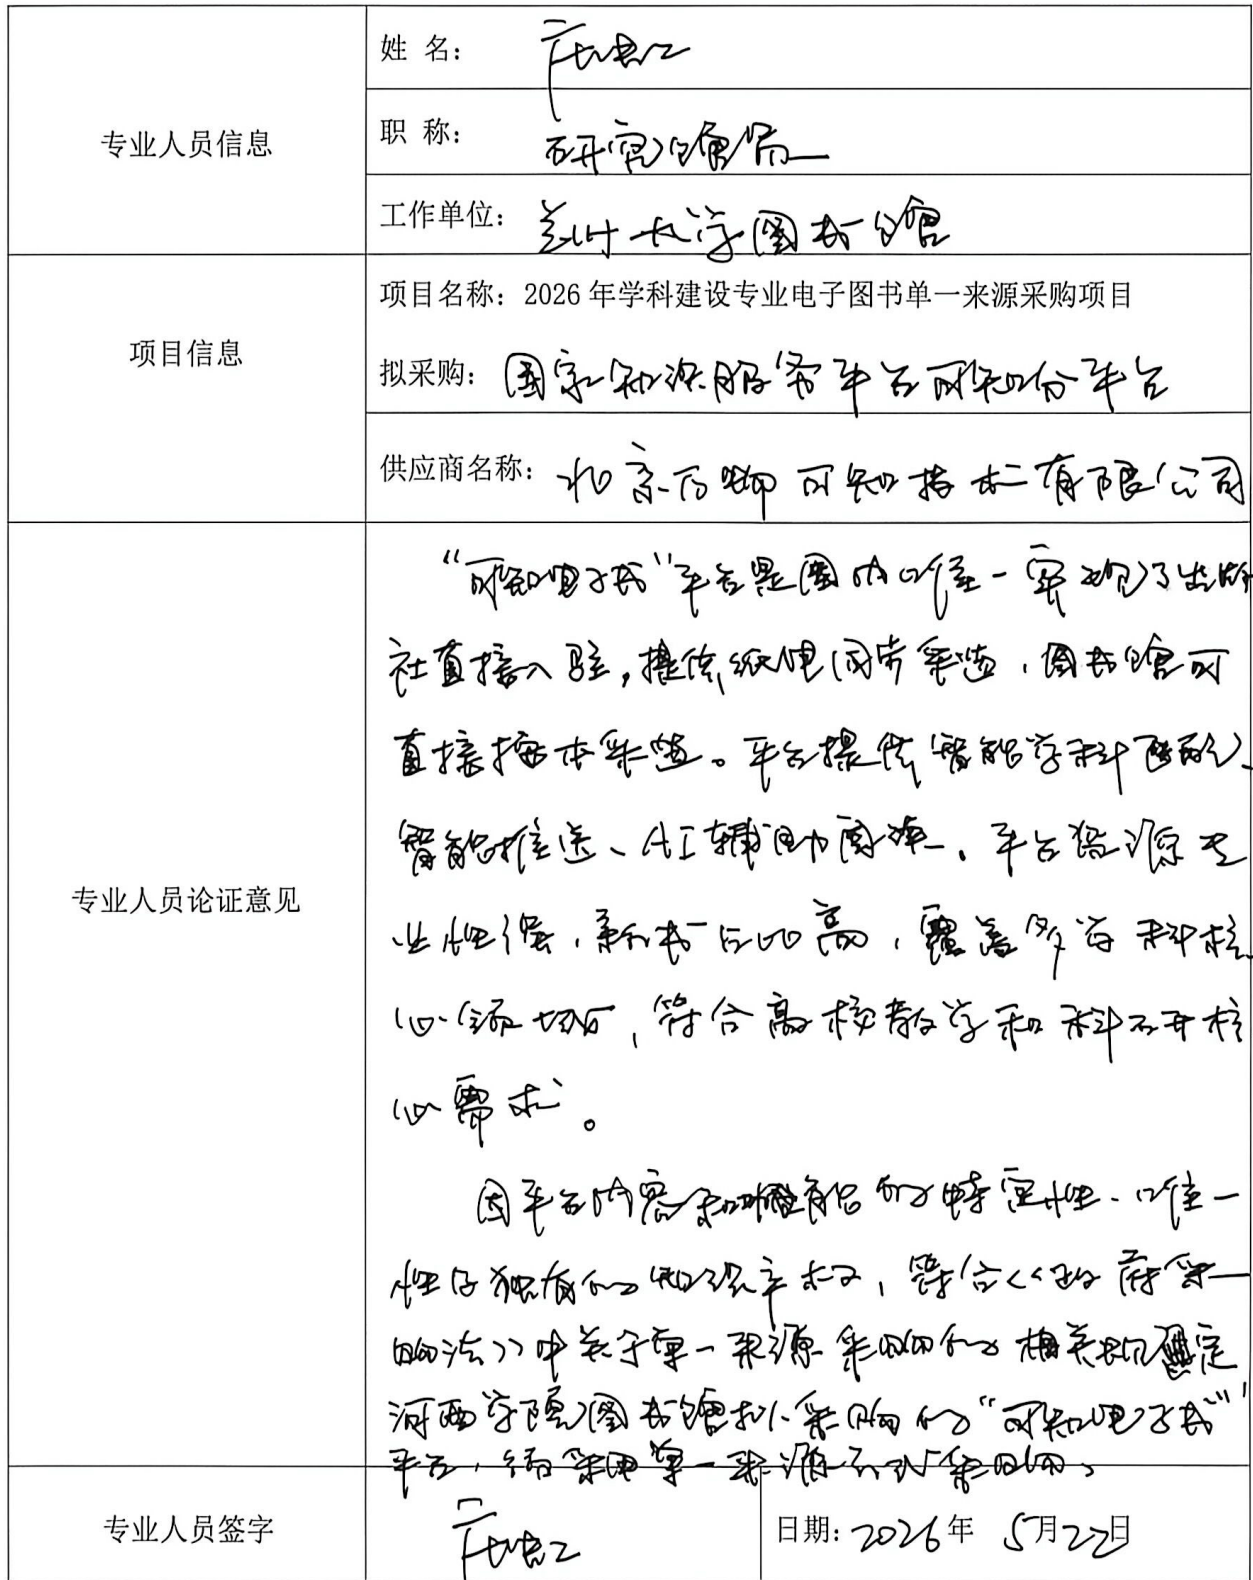 专业人员信息
姓 名：
职 称：研究馆员
工作单位：兰州大学图书馆
项目信息
项目名称：2026年学科建设专业电子图书单一来源采购项目
拟采购：国家知识服务平台可知分平台
供应商名称：北京 可知技术有限公司
专业人员论证意见
“可知电子书”平台是国内唯一实现了出版
社直接入驻，提供纸电同步采选，图书馆可
直接按本采选。平台提供智能学科匹配、
智能推送、AI辅助阅读。平台资源专
业性强，新书占比高，覆盖多学科核
心领域，符合高校教学和科研核
心需求。
因平台内容和功能的特定性、唯一
性及独有的知识产权，符合《政府采
购法》中关于单一来源采购的相关规定
河西学院图书馆拟采购的“可知电子书”
平台，采用单一来源方式采购。
专业人员签字
日期：2026年 5月22日